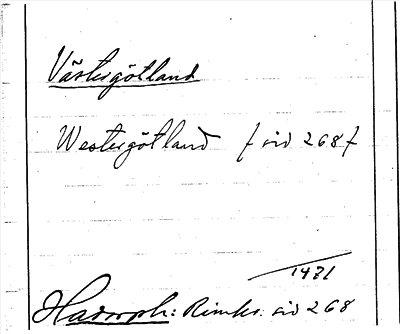 Västergötland
Westergötland / sid 268 /
1471
Hadorph: Rimkr. sid 268